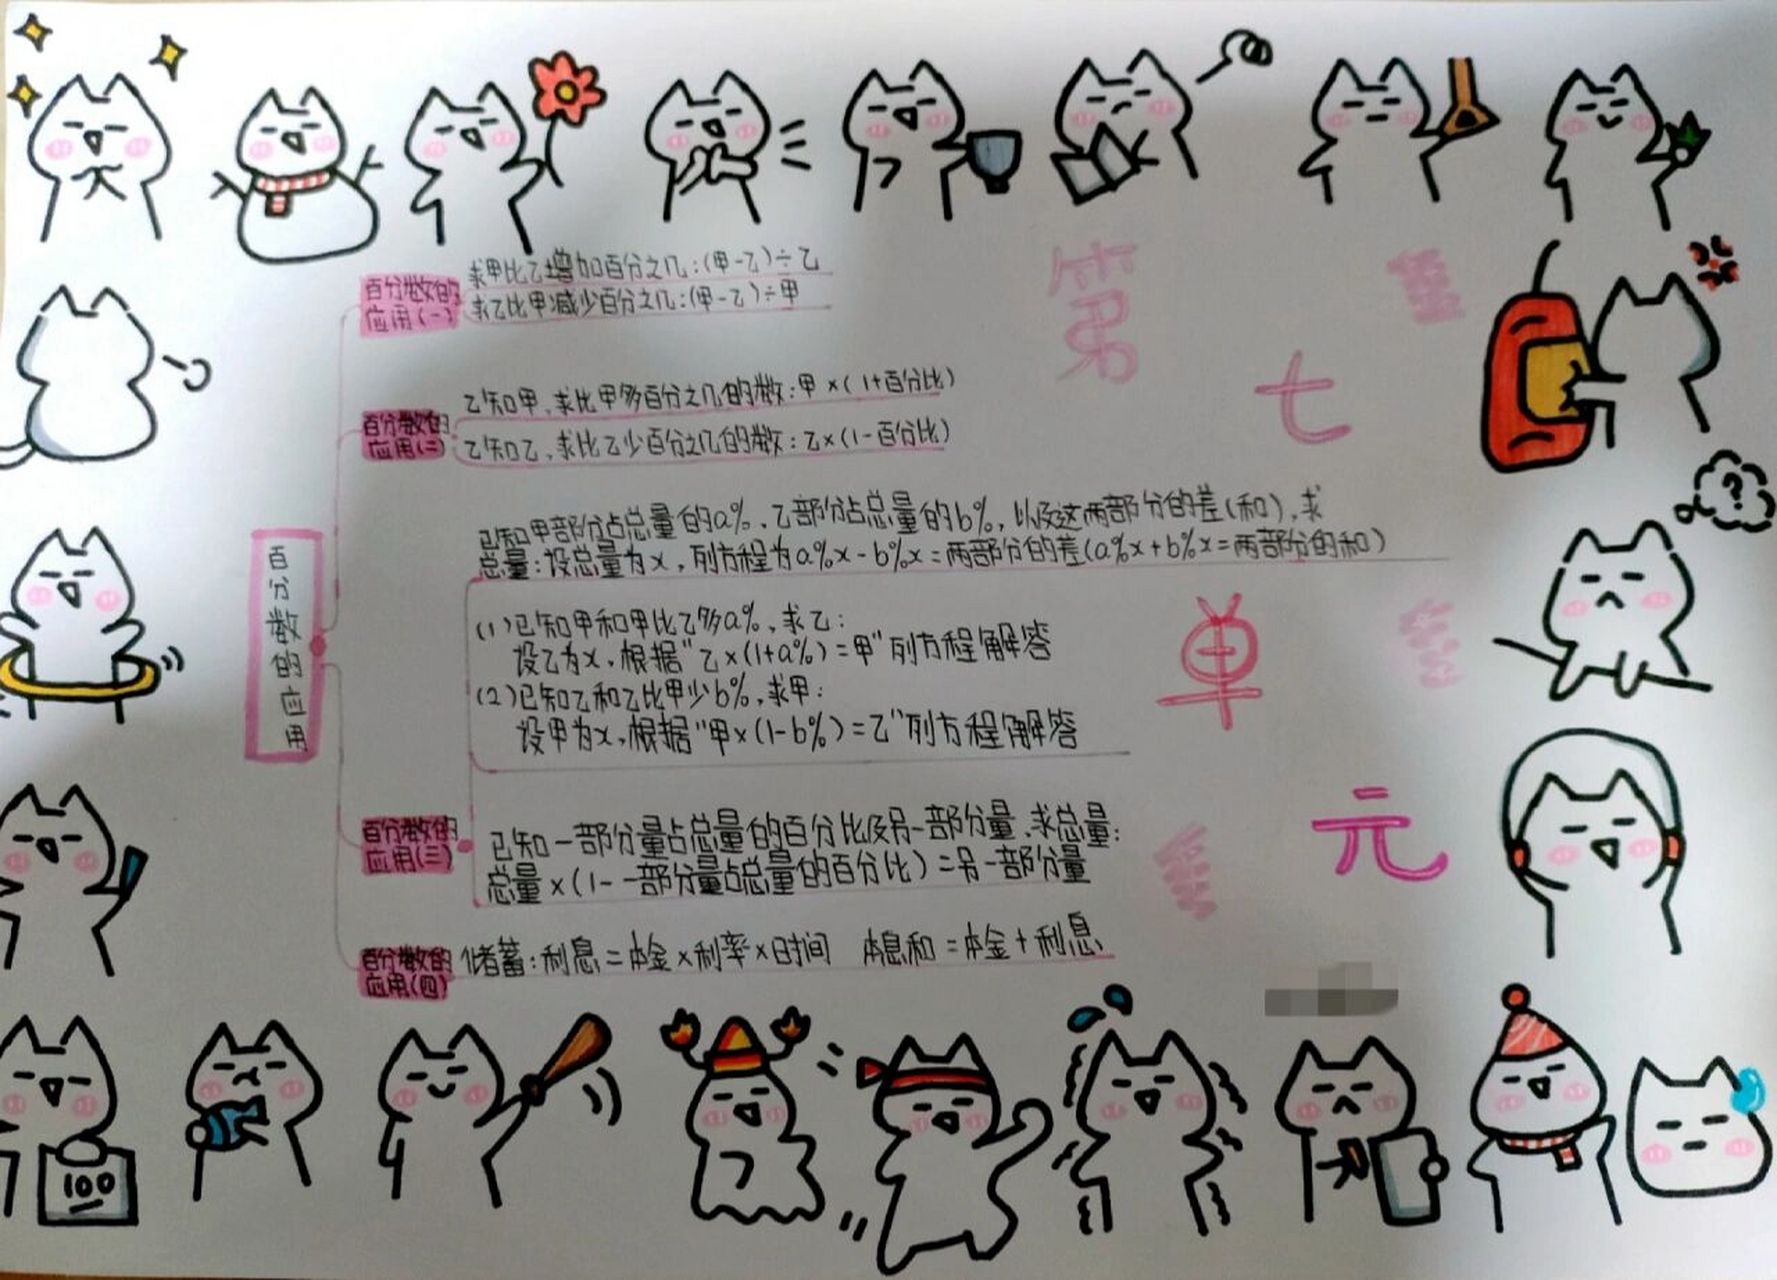 百分数的应用
百分数的
应用(一)
求甲比乙增加百分之几:(甲-乙)÷乙
求乙比甲减少百分之几:(甲-乙)÷甲
百分数的
应用(二)
乙知甲,求比甲多百分之几的数:甲×(1+百分比)
乙知乙,求比乙少百分之几的数:乙×(1-百分比)
百分数的
应用(三)
已知甲部分占总量的a%,乙部分占总量的b%,以及这两部分的差(和),求
总量:设总量为x,列方程为a%x-b%x=两部分的差(a%x+b%x=两部分的和)
(1)已知甲和甲比乙多a%,求乙:
设乙为x,根据"乙×(1+a%)=甲"列方程解答
(2)已知乙和乙比甲少b%,求甲:
设甲为x,根据"甲×(1-b%)=乙"列方程解答
已知一部分量占总量的百分比及另一部分量,求总量:
总量×(1-一部分量占总量的百分比)=另一部分量
百分数的
应用(四)
储蓄:利息=本金×利率×时间 本息和=本金+利息
第
七
单
元
?
100